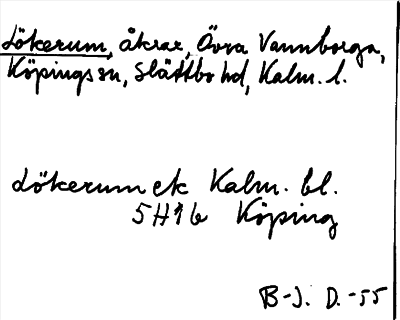 Lökerum, åkrar, Övra Vannborga,
Köpings sn, Slättbo hd, Kalm. l.
Lökerum ek Kalm. bl.
5H1b Köping
B-J. D. -55